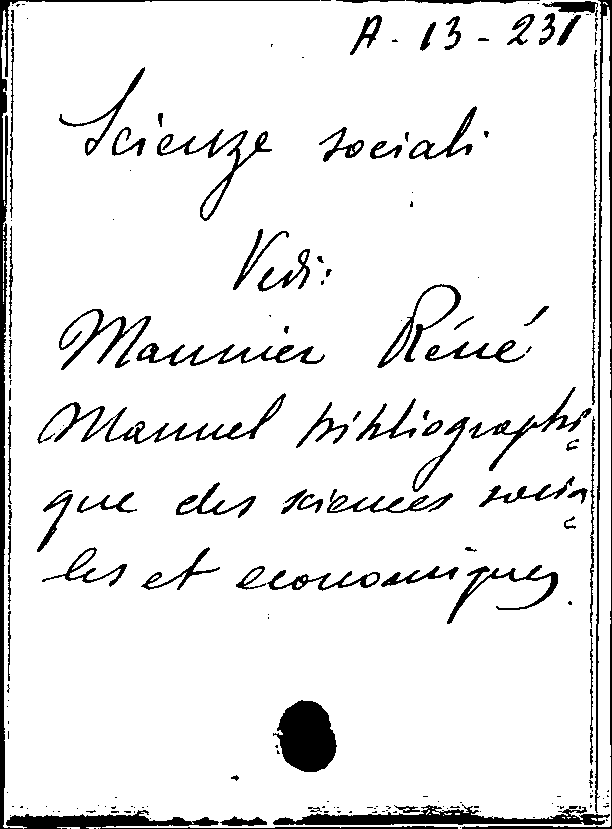 A - 13 - 231
Scienze sociali
Vedi:
Maunier Réné
Manuel bibliographi
que des sciences socia
les et economiques.